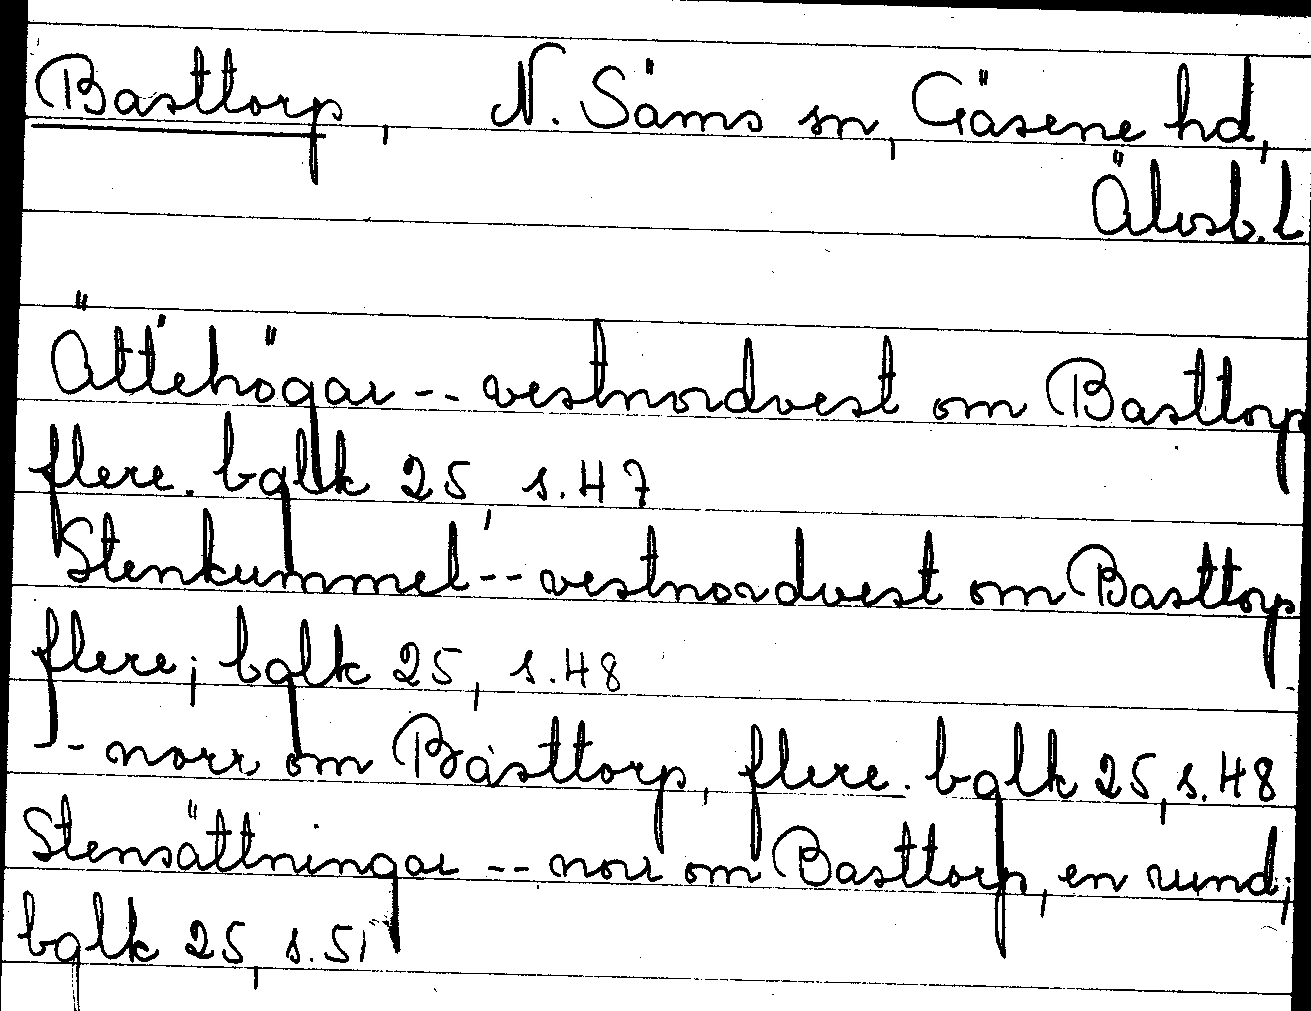 Basttorp, N. Säms sn, Gäsene hd,
Älvsb. l
Ättehögar -- vestnordvest om Basttorp
flere. bglk 25, s. 47
Stenkummel -- vestnordvest om Basttorp
flere; bglk 25, s. 48
-- norr om Basttorp, flere. bglk 25, s. 48
Stensättningar -- norr om Basttorp, en rund;
bglk 25, s. 51